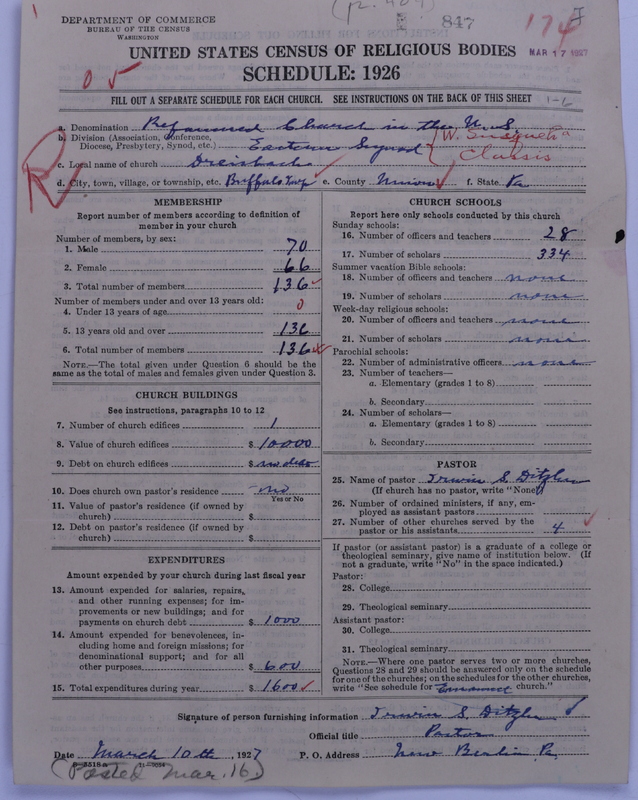 (p. 404)
847
174
DEPARTMENT OF COMMERCE
BUREAU OF THE CENSUS
WASHINGTON
MAR 17 1927
UNITED STATES CENSUS OF RELIGIOUS BODIES
SCHEDULE: 1926
05
FILL OUT A SEPARATE SCHEDULE FOR EACH CHURCH. SEE INSTRUCTIONS ON THE BACK OF THIS SHEET
1-6
a. Denomination Reformed Church in the U.S
b. Division (Association, Conference, Diocese, Presbytery, Synod, etc.) Eastern Synod W. Susqueh'a Classis
c. Local name of church Dreisbach
R
d. City, town, village, or township, etc. Buffalo Twp e. County Union f. State Pa
MEMBERSHIP
Report number of members according to definition of
member in your church
Number of members, by sex:
1. Male 70
2. Female 66
3. Total number of members 136
Number of members under and over 13 years old:
4. Under 13 years of age 0
5. 13 years old and over 136
6. Total number of members 136
NOTE.—The total given under Question 6 should be
same as the total of males and females given under Question 3.
CHURCH BUILDINGS
See instructions, paragraphs 10 to 12
7. Number of church edifices 1
8. Value of church edifices $ 10000
9. Debt on church edifices $ no debt
10. Does church own pastor's residence no
Yes or No
11. Value of pastor's residence (if owned by
church) $
12. Debt on pastor's residence (if owned by
church) $
EXPENDITURES
Amount expended by your church during last fiscal year
13. Amount expended for salaries, repairs,
and other running expenses; for im-
provements or new buildings; and for
payments on church debt $ 1000
14. Amount expended for benevolences, in-
cluding home and foreign missions; for
denominational support; and for all
other purposes $ 600
15. Total expenditures during year $ 1600
CHURCH SCHOOLS
Report here only schools conducted by this church
Sunday schools:
16. Number of officers and teachers 28
17. Number of scholars 334
Summer vacation Bible schools:
18. Number of officers and teachers none
19. Number of scholars none
Week-day religious schools:
20. Number of officers and teachers none
21. Number of scholars none
Parochial schools:
22. Number of administrative officers none
23. Number of teachers—
a. Elementary (grades 1 to 8)
b. Secondary
24. Number of scholars—
a. Elementary (grades 1 to 8)
b. Secondary
PASTOR
25. Name of pastor Irwin S. Ditzler
(If church has no pastor, write "None")
26. Number of ordained ministers, if any, em-
ployed as assistant pastors
27. Number of other churches served by the
pastor or his assistants 4
If pastor (or assistant pastor) is a graduate of a college or
theological seminary, give name of institution below. (If
not a graduate, write "No" in the space indicated.)
Pastor:
28. College
29. Theological seminary
Assistant pastor:
30. College
31. Theological seminary
NOTE.—Where one pastor serves two or more churches,
Questions 28 and 29 should be answered only on the schedule
for one of the churches; on the schedules for the other churches,
write "See schedule for Emmanuel church."
Signature of person furnishing information Irwin S. Ditzler
Official title Pastor
Date March 10th, 1927 P. O. Address New Berlin Pa.
(Posted Mar. 16)